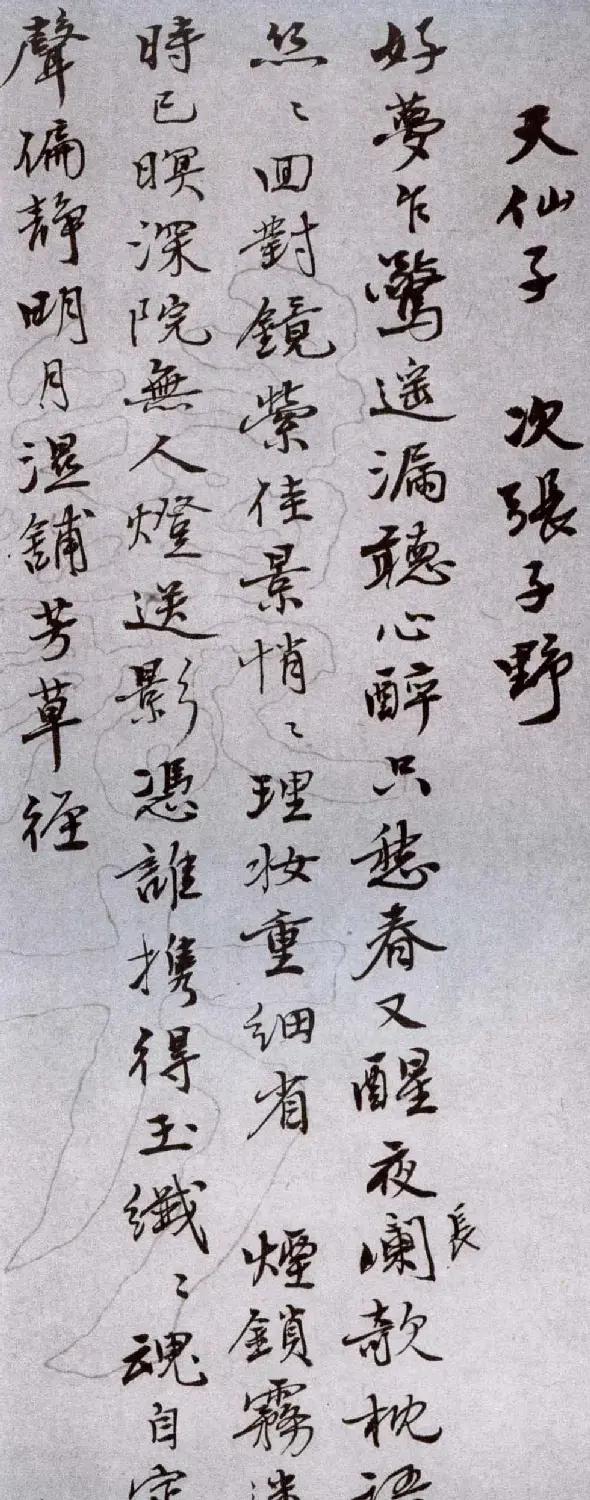 天仙子 次張子野
好夢乍驚遥漏聽心醉只愁春又醒夜瀾欹枕
長
絲〻回對鏡縈佳景悄〻理妝重細省 煙鎖霧
時已暝深院無人燈送影憑誰携得玉纖〻魂自定
聲偏静明月濕舖芳草徑